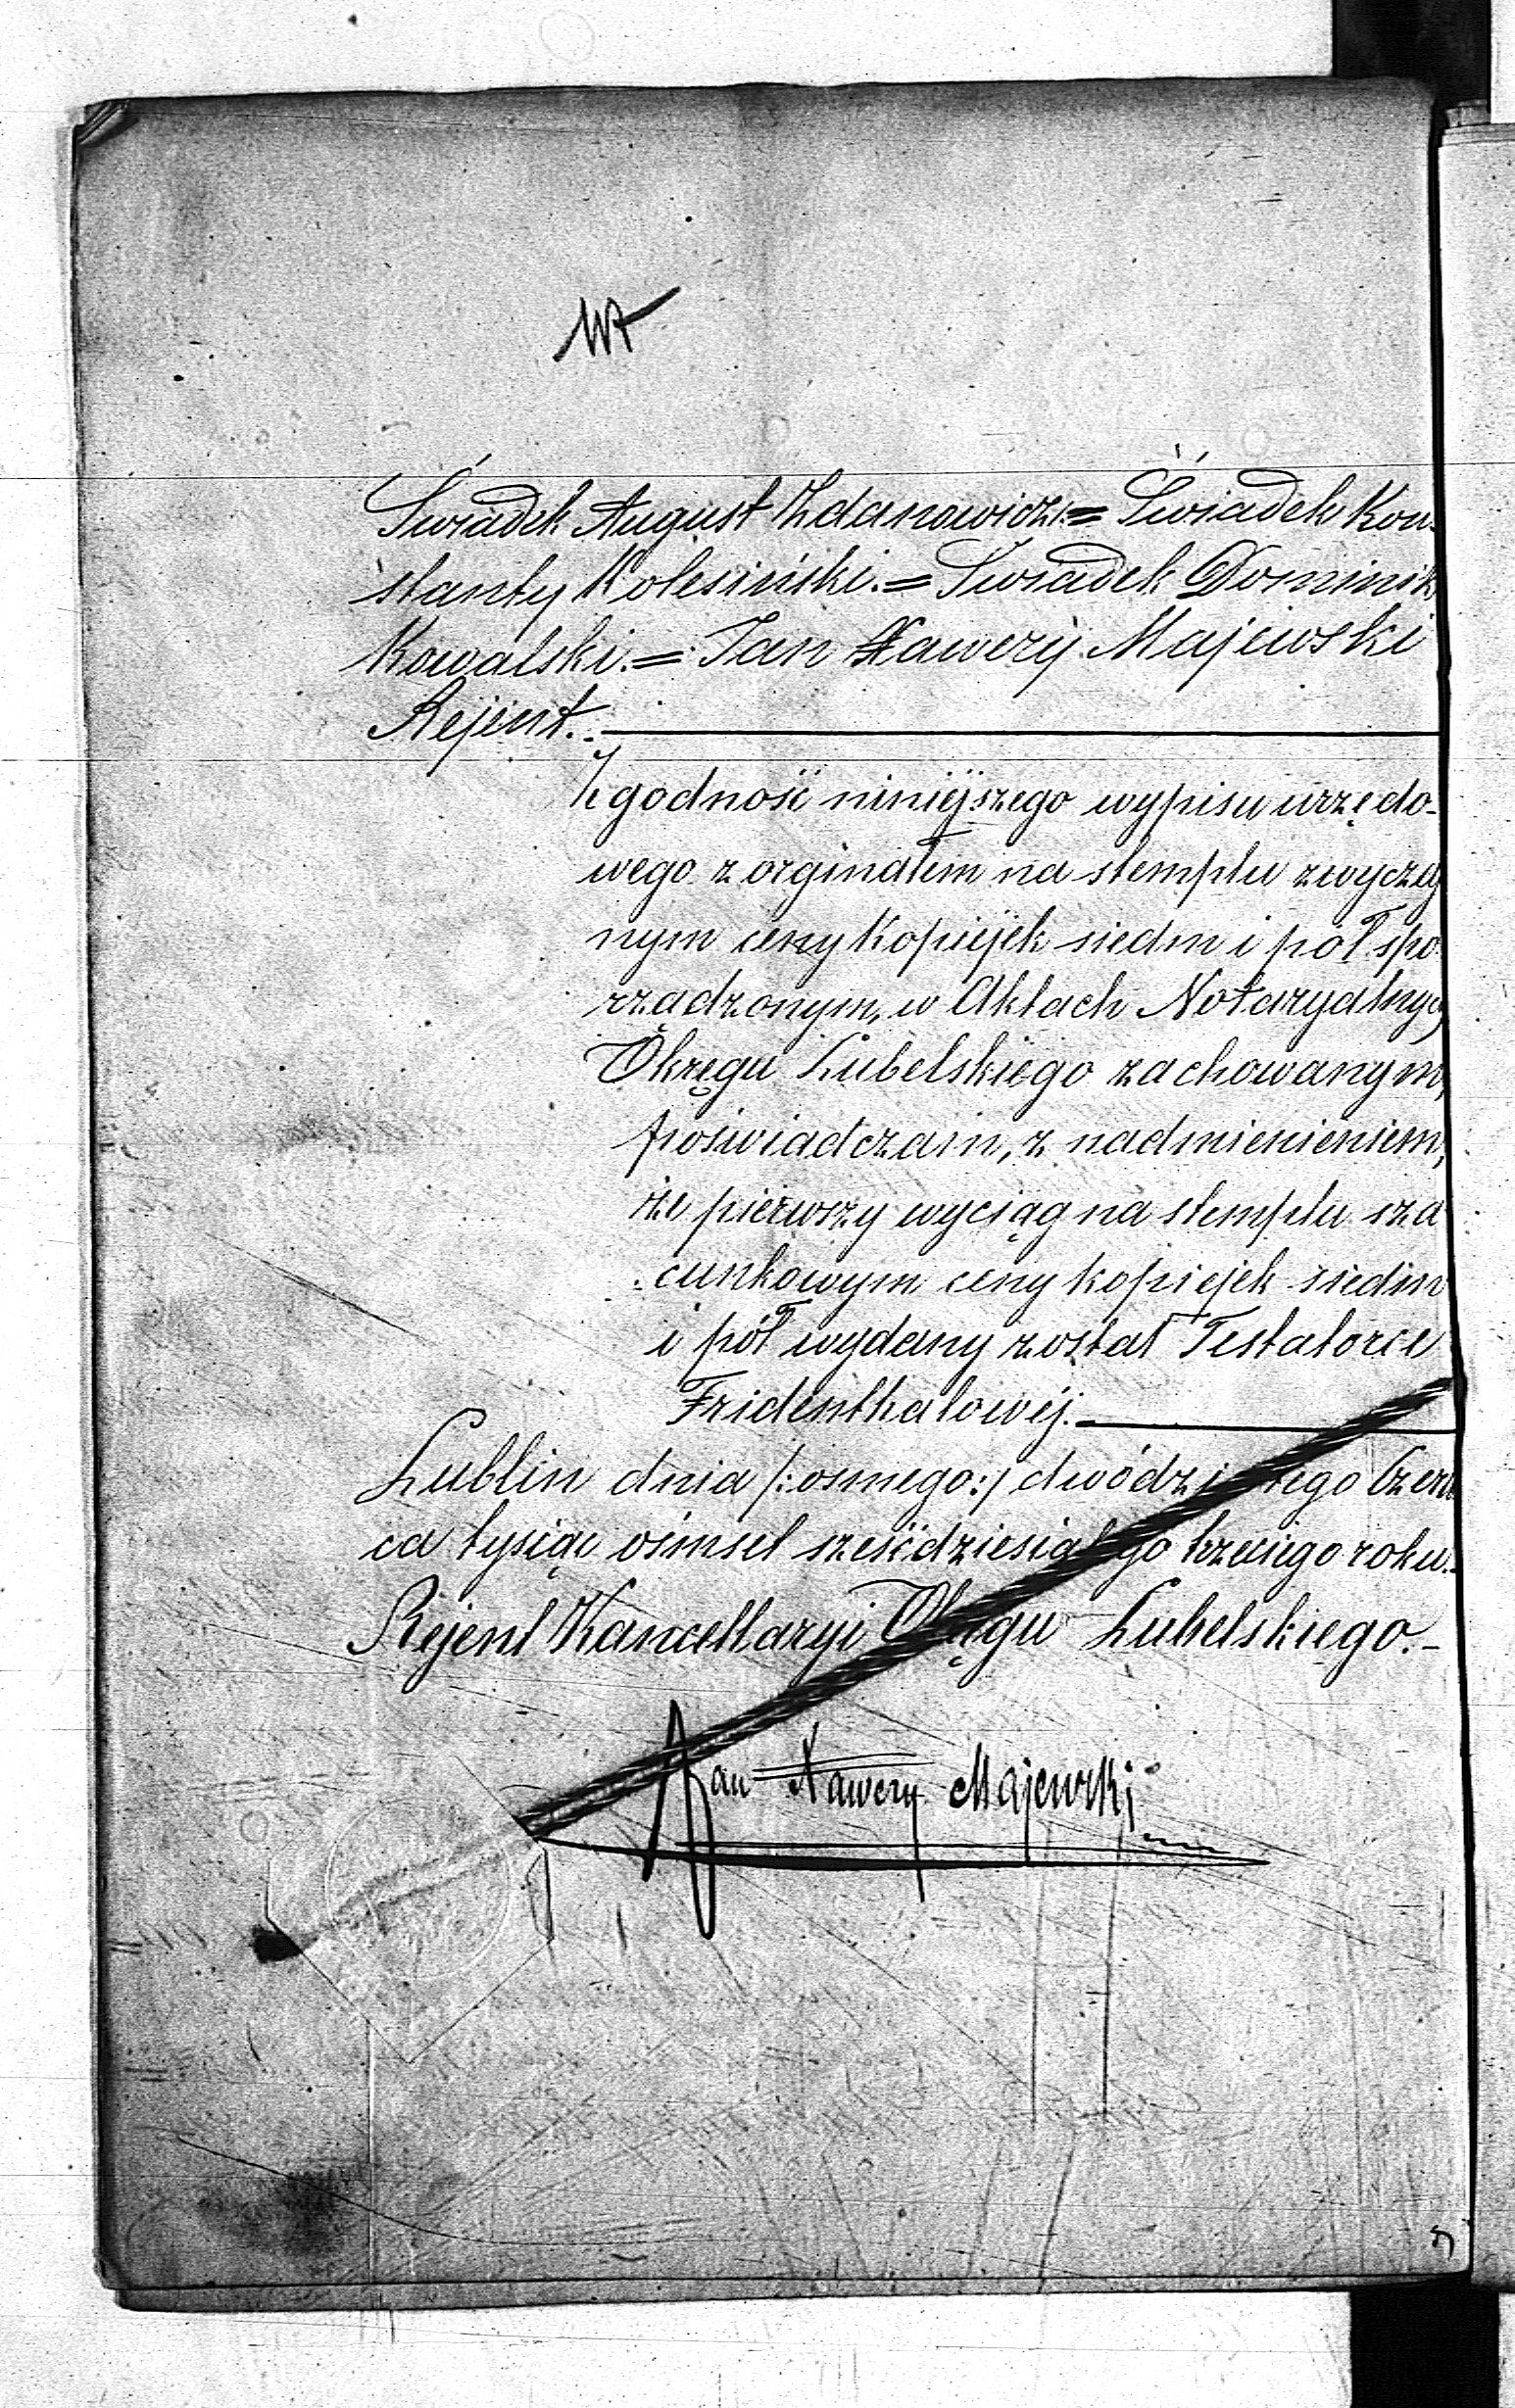 Świadek August Zdanowicz.= Świadek Kon-
stanty Kolesiński.= Świadek Dominik
Kowalski.= Jan Xawery Majewski
Rejent.
Zgodność niniejszego wypisu urzędo-
wego z orginałem na stemplu zwyczaj
nym ceny Kopiejek siedm i pół spo-
rządzonym, w Aktach Notaryalnych
Okręgu Lubelskiego zachowanym,
poświadczam, z nadmienieniem,
że pierwszy wyciąg na stemplu sza
cunkowym ceny kopiejek siedm
i pół wydany został Testatorce
Fridenthalowéj.
Lublin dnia /:osmego:/ dwódziestego Czerw
ca tysiąc ośmset sześćdziesiątego trzeciego roku.
Rejent Kancellaryi Okręgu Lubelskiego.-
Jan Xawery Majewski